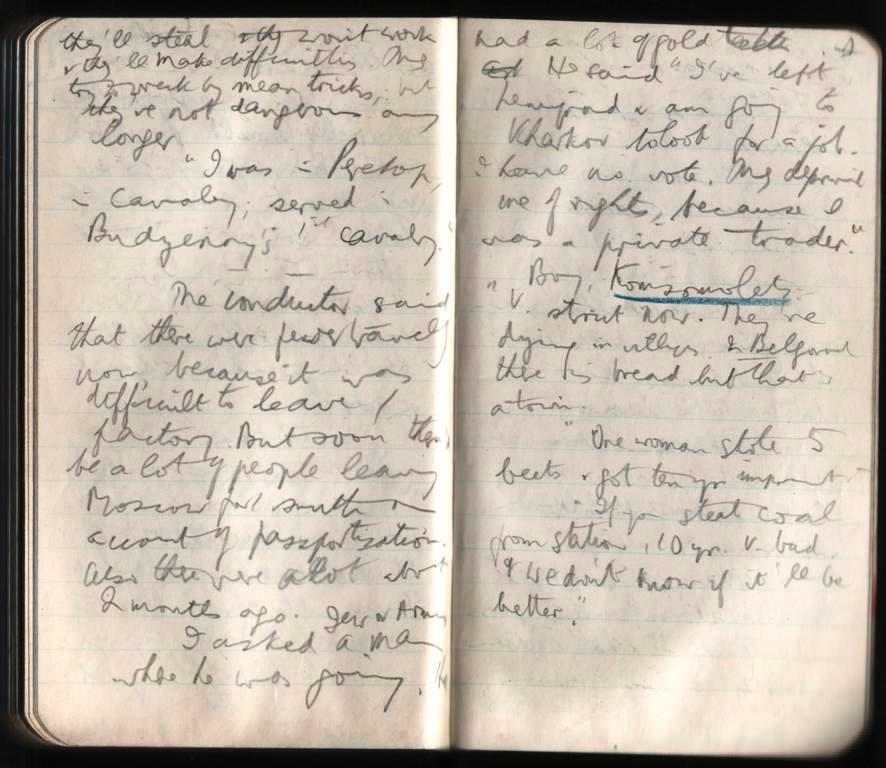 they'll steal & they won't work
& they'll make difficulties. They
try to wreck by mean tricks, but
they're not dangerous any
longer.
"I was in Perekop,
in Cavalry; served in
Budyenny's 1st cavalry."
The conductor said
that there were fewer travell
now, because it was
difficult to leave /
factory. But soon there'll
be a lot of people leaving
Moscow for south on
account of passportization.
Also there were a lot about
2 months ago. Jew or Arm
I asked a man
where he was going. He
had a lot of gold teeth
He said "I've left
& am going to
Kharkov to look for a job.
I have no vote. They deprived
me of rights, because I
was a private trader."
Boy, Komsomolets
"V. strict now. They're
dying in villages. In Belgorod
there is bread but that's
a town.
"One woman stole 5
beets & got ten yrs imprisonment
"If you steal coal
from station, 10 yrs. V. bad
& we don't know if it'll be
better."